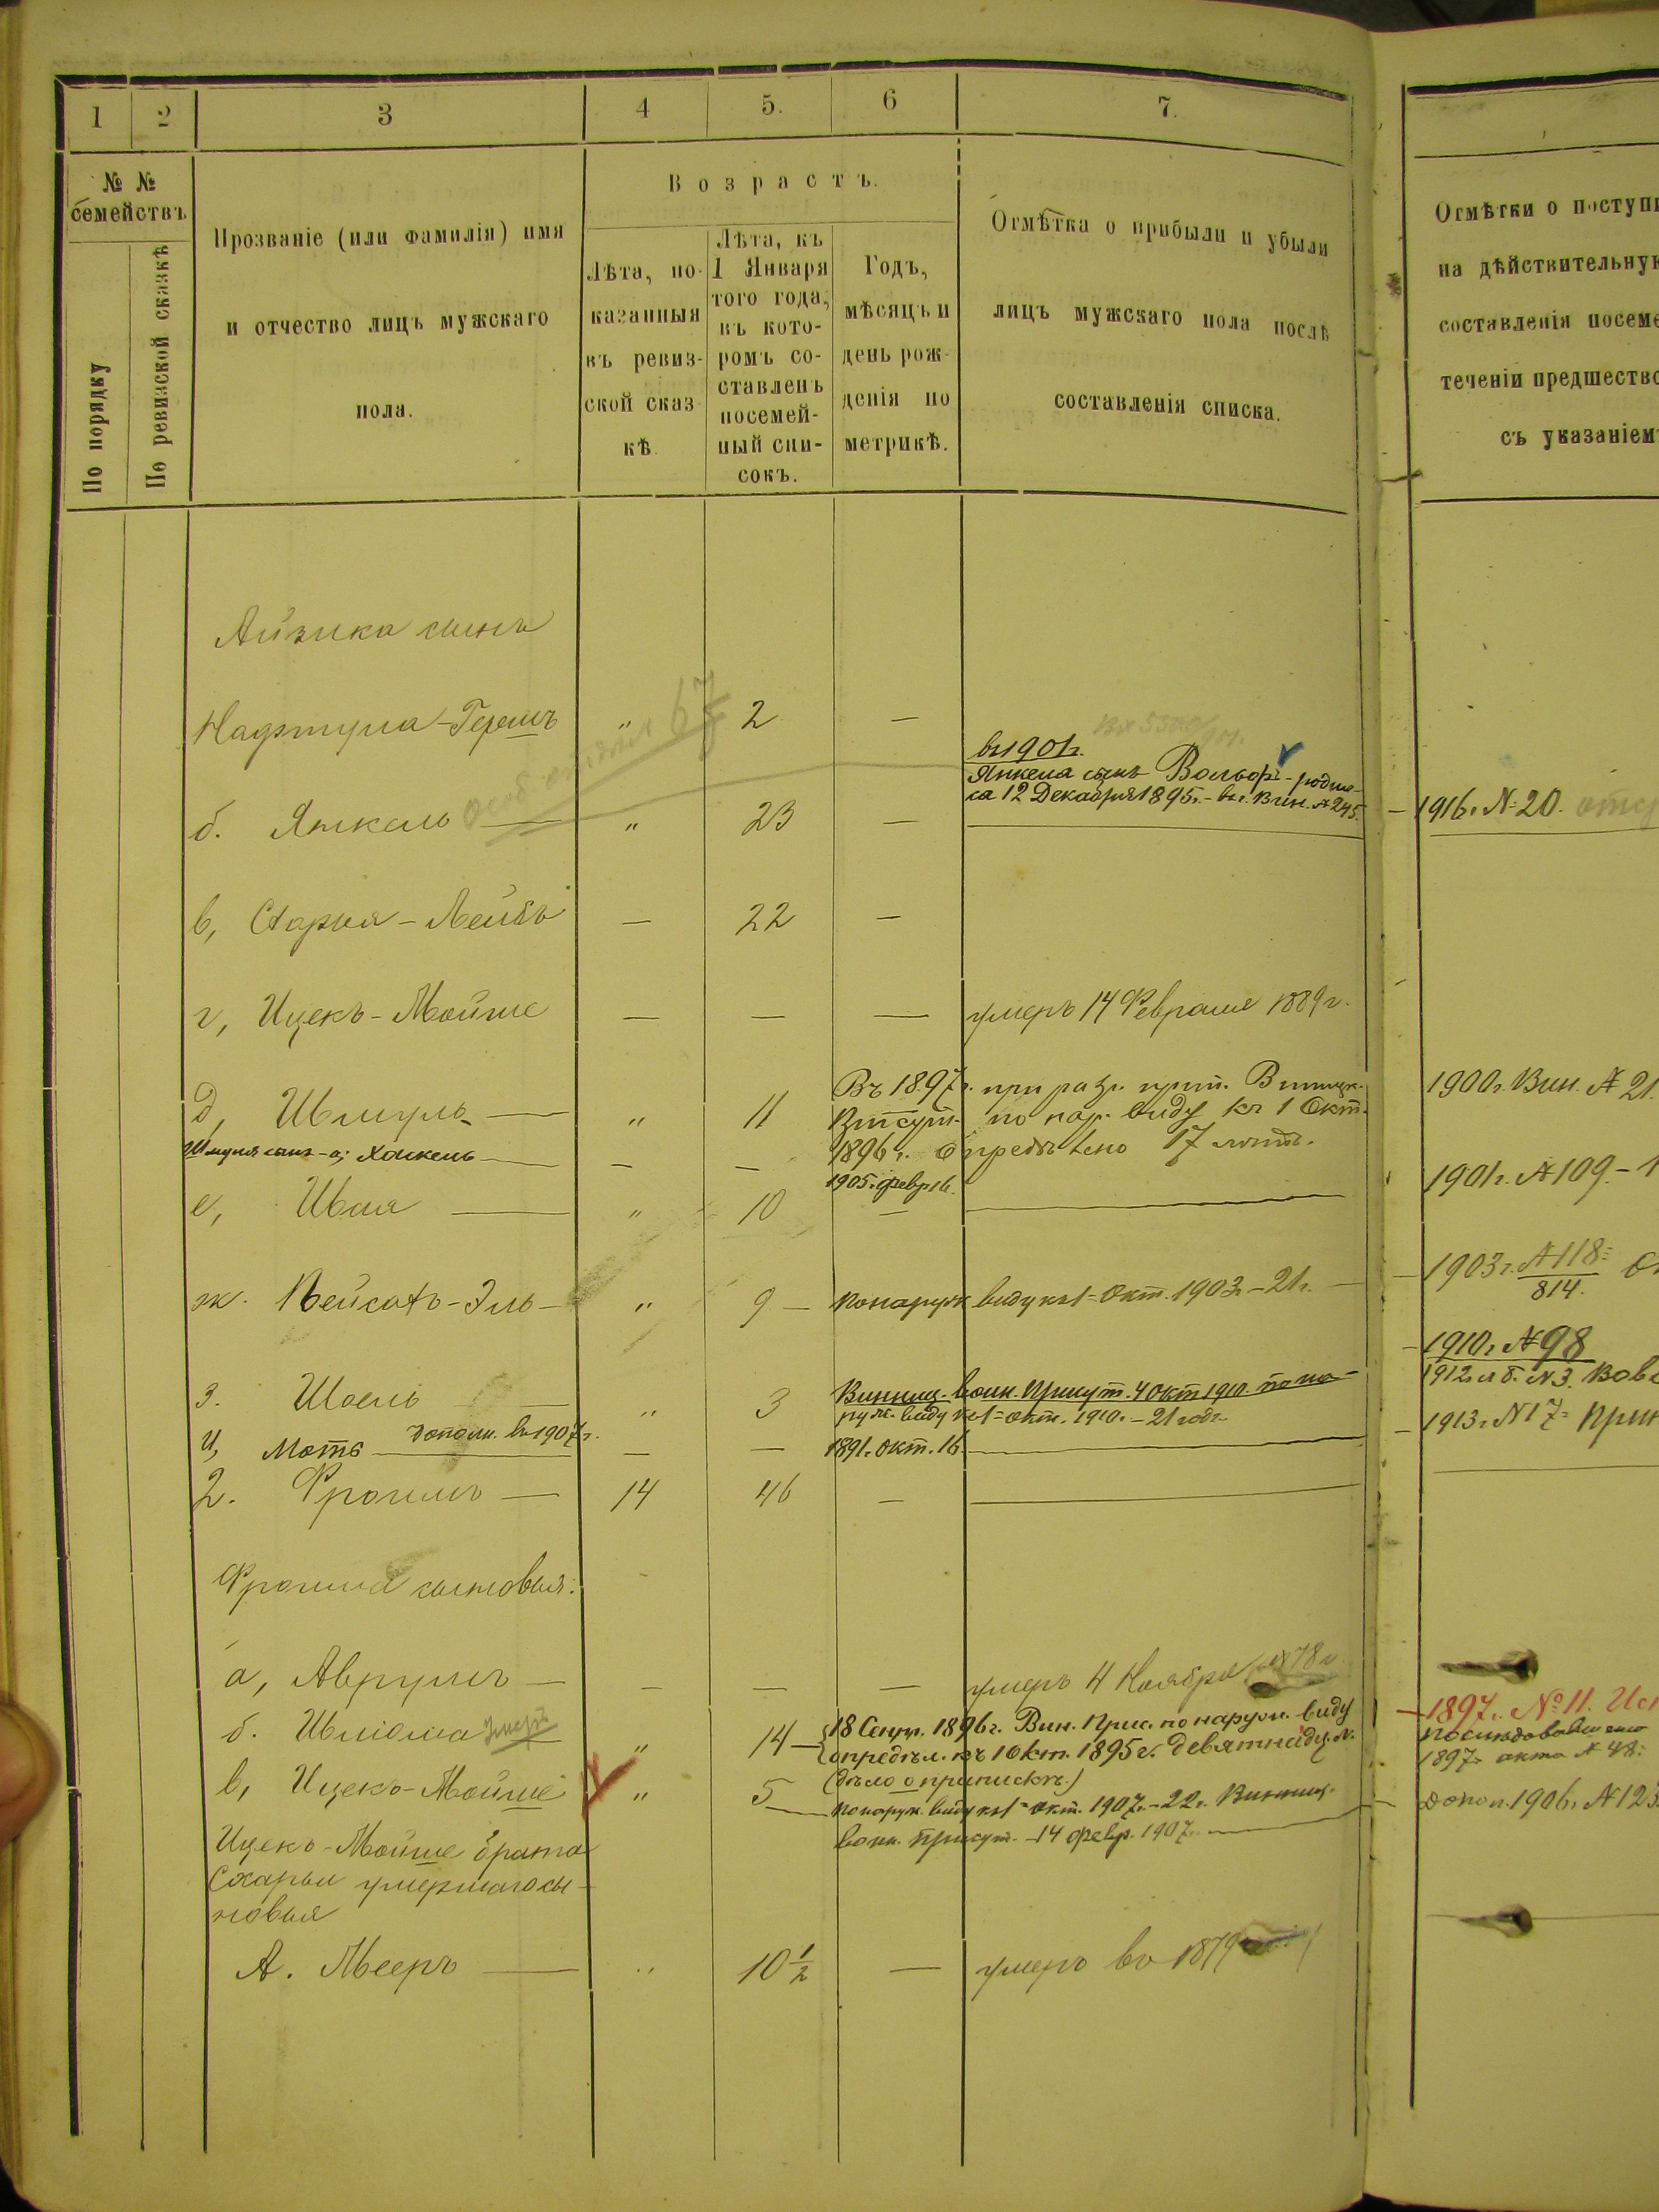 1 2 3 4 5. 6 7.
№ №
семействъ
По порядку
По ревизской сказкѣ
Прозваніе (или фамилія) имя
и отчество лицъ мужскаго
пола.
Возрастъ.
Лѣта, по-
казанныя
въ ревиз-
ской сказ-
кѣ.
Лѣта, къ
1 Января
того года,
въ кото-
ромъ со-
ставленъ
посемей-
ный спи-
сокъ.
Годъ,
мѣсяцъ и
день рож-
денія по
метрикѣ.
Отмѣтка о прибыли и убыли
лицъ мужскаго пола послѣ
составленія списка.
Отмѣтки о поступи
на дѣйствительну
составленія посеме
теченіи предшество
съ указаніем
Айзика сынъ
Нафтула-Гершъ " 2 —
въ 1901г.
Янкеля сынъ Вольфъ - родил-
ся 12 Декабря 1895г. - вы. Вин. № 245.
б. Янкель — " 23 — 1916г. № 20.
в, Схария-Лейбъ — 22 —
г, Ицекъ-Мойше — — — умеръ 14 Февраля 1889г.
д, Шмуль — " 11 Въ 1897г. при раз. приз. Винницк.
Присут. по нар. виду къ 1 Окт.
1896г. опредѣлено 17 лѣтъ.
1900г. Вин. № 21.
Шмуля сынъ - а; Хаскель — — — 1905г. февр 16.
1901г. № 109 -
е, — " 10 —
ж. Пейсахъ-Эль — " 9 — по наруж виду къ 1 Окт. 1903 - 21г. —
1903г. № 118
814.
1910г. № 98
з. Шоель — " 3 Винниц. Воин. Присут. 4 окт 1910. по на-
руж. виду къ 1 окт. 1910г. - 21 годъ.
1912г. № 3.
1913г. № 17
и, Мотъ дополн. въ 1907г. — — 1891г. окт. 16.
2. Фроимъ — 14 46 —
Фроима сыновья:
а, Аврумъ — — — — умеръ 4 Ноября 1878г
б. Шлома умеръ " 14 — 18 Сент. 1896г. Вин. Прис. по наруж. виду
опредѣл. къ 1 окт. 1895г. девятнадц. л.
(дѣло о припискѣ.)
1897г. № 11.
1897г. акта № 48.
в, Ицекъ-Мойше " 5 — по наруж. виду къ 1 окт. 1907г. - 22г. Винниц.
воин. присут. - 14 февр. 1907г. —
допол. 1906г. № 123.
Ицекъ-Мойше брата
Схарьи умершаго сы-
новья
А. Мееръ — " 10 1/2 — умеръ въ 1879